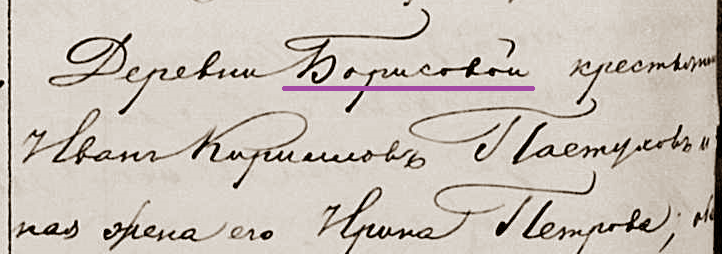 Деревни Борисовой крестьянин
Иванъ Кирилловъ Пастуховъ и
ная жена его Ирина Петрова;